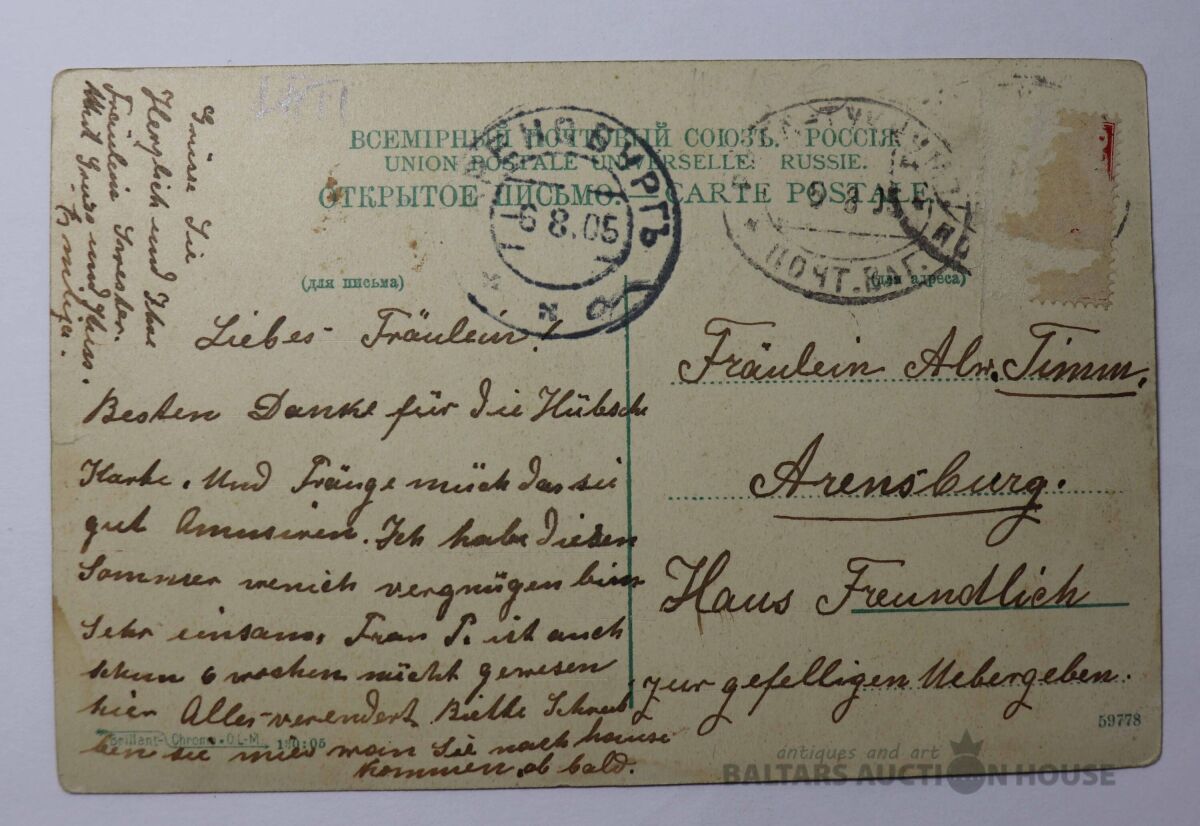 ВСЕМІРНЫЙ ПОЧТОВЫЙ СОЮЗЪ. РОССІЯ.
UNION POSTALE UNIVERSELLE. RUSSIE.
ОТКРЫТОЕ ПИСЬМО. — CARTE POSTALE.
АРЕНСБУРГЪ
6 8.05
ПОЧТ. ВАГ.
(для письма)
(для адреса)
Grüsse Sie
Herzlich und Ihre
Fräulein Swester.
Mit Gruss und Küss.
Liebes Fräulein!
Besten Danke für die Hübsche
Karte. Und Fräuge müch das sie
gut Amusiren. Ich habe diesen
Sommer wenich vergnügen bin
Sehr einsam, Frau P. ist auch
schun 6 wochen nücht gewesen
hier Alles verendert Bitte Schreib
ben sie mier wan Sie nach hause
kommen ob bald.
Fräulein Alw. Timm.
Arensburg.
Haus Freundlich
zur gefelligen Uebergeben.
Brillant-Chromo. O.L-M. 130:05
59778
antiques and art
BALTARS AUCTION HOUSE